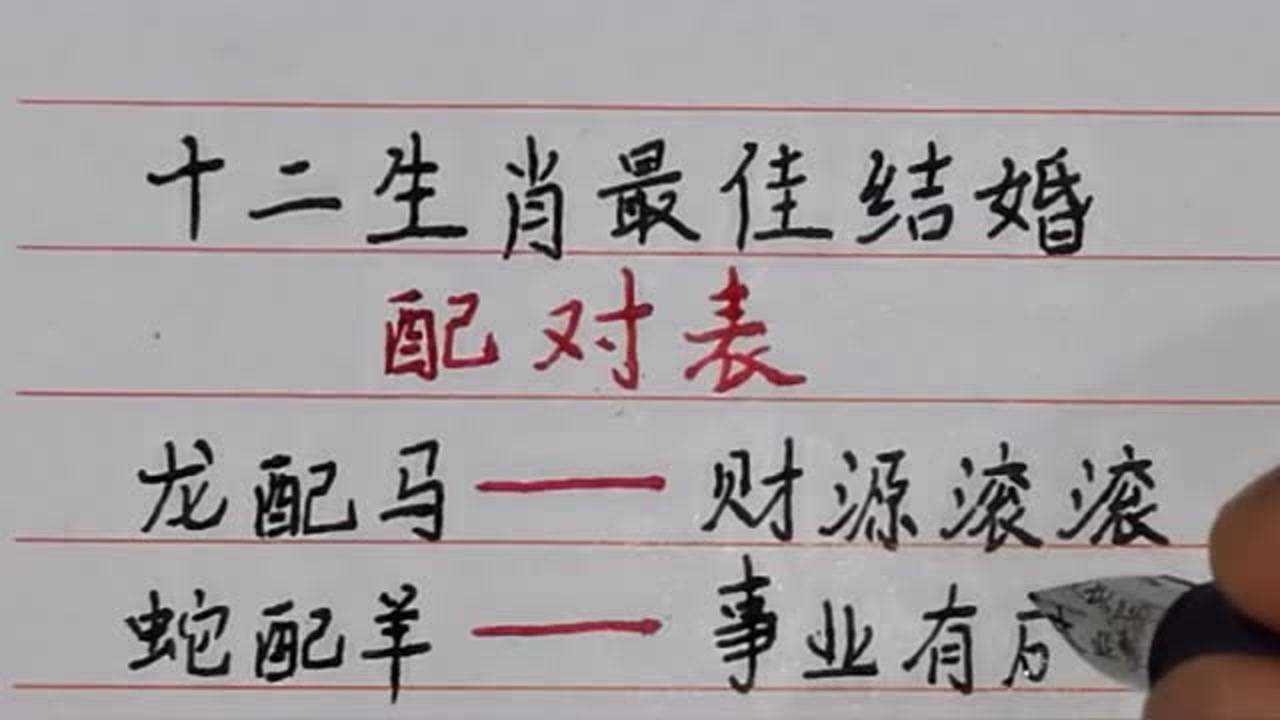 十二生肖最佳结婚
配对表
龙配马——财源滚滚
蛇配羊——事业有